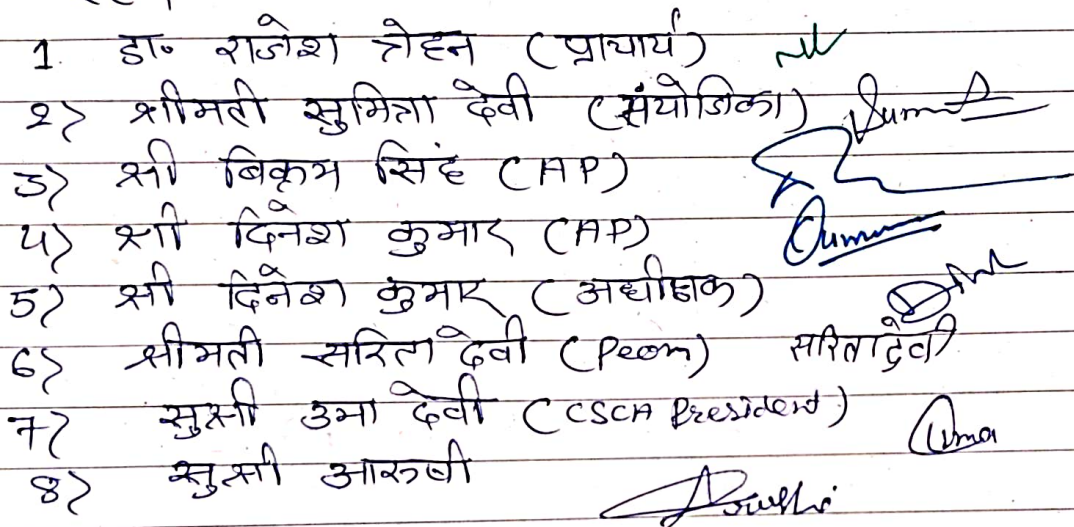 1. डा० राजेश त्रेहन (प्राचार्य)
2> श्रीमती सुमित्रा देवी (संयोजिका)
3> श्री बिक्रम सिंह (AP)
4> श्री दिनेश कुमार (AP)
5> श्री दिनेश कुमार (अधीक्षक)
6> श्रीमती सरिता देवी (Peon) सरिता देवी
7> सुश्री उमा देवी (CSCA President) Uma
8> सुश्री आरुषी Arushi